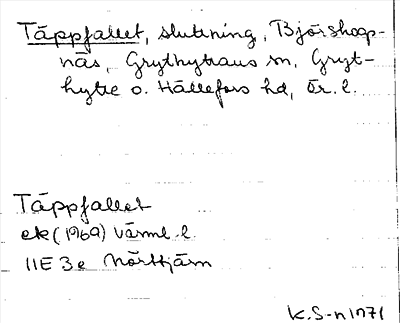 Täppfallet, sluttning, Björskogs-
näs, Grythyttans sn, Gryt-
hytte o. Hällefors hd, Ör. l.
Täppfallet
ek (1969) Värml. l.
11E 3e Norttjärn
K.S-n 1971